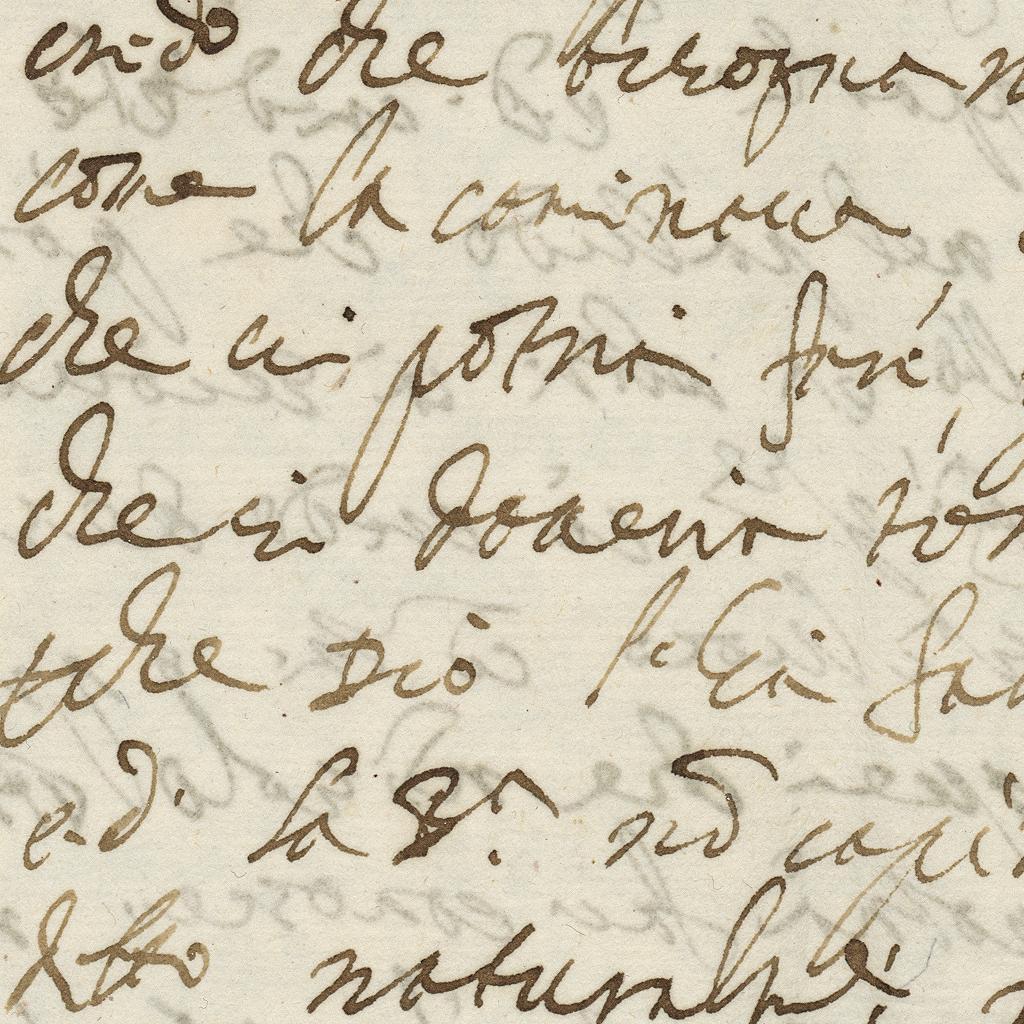 credo che bisogna
come la caminaua
che ci potria fare
che ci doueria
che Dio
e di la S.ra nō capi
detto naturalm.te